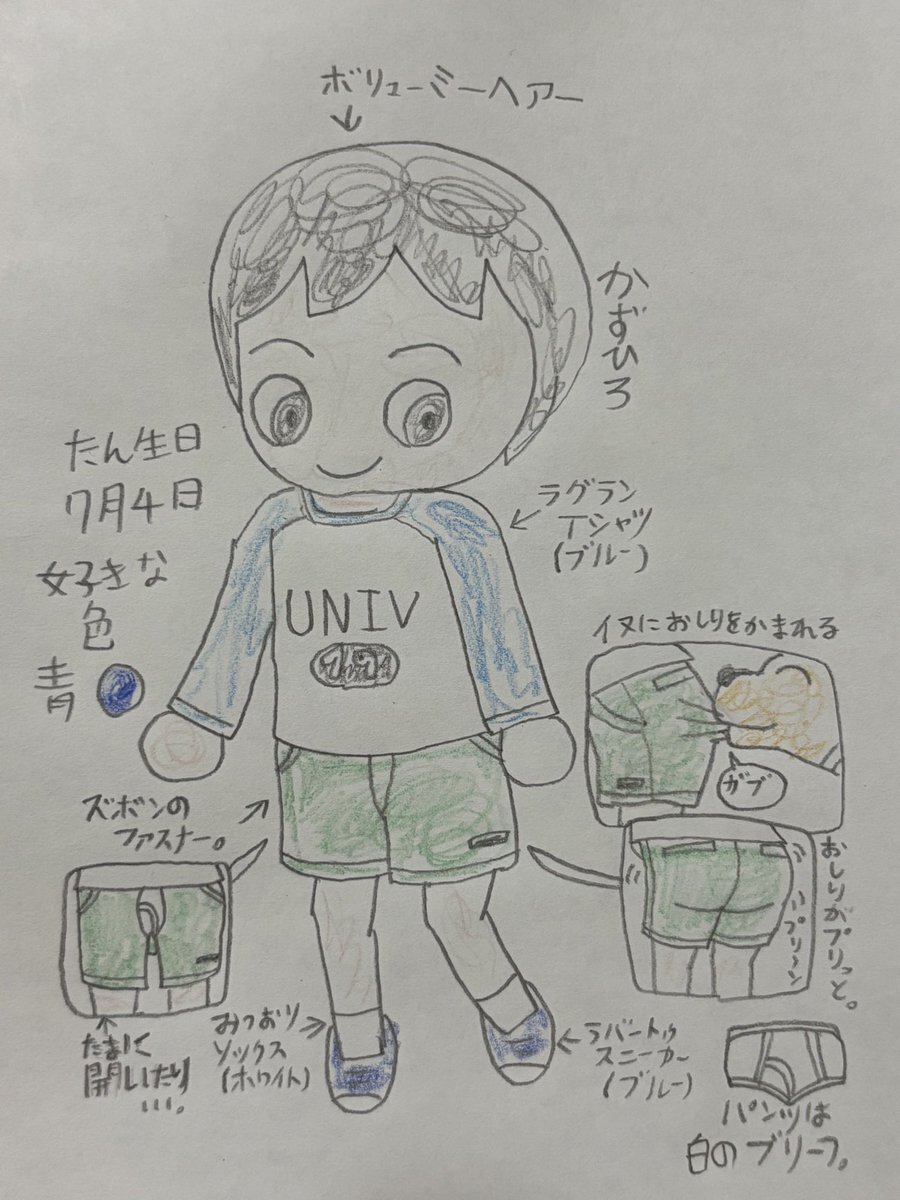 ボリューミーヘアー
かずひろ
たん生日
7月4日
好きな
色
青
ラグラン
Tシャツ
(ブルー)
UNIV
イヌにおしりをかまれる
ガブ
ズボンの
ファスナー。
おしりがプリっと。
プリ〜ン
たまに
開いたり
…。
みつおり
ソックス
(ホワイト)
ラバートゥ
スニーカー
(ブルー)
パンツは
白のブリーフ。